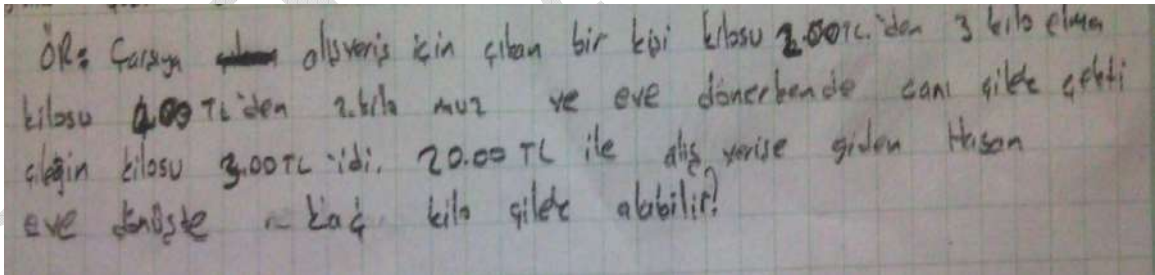 ÖR: Çarşıya alışveriş için çıkan bir kişi kilosu 2.00TL'den 3 kilo elma
kilosu 4.00 TL'den 2 kilo muz ve eve dönerkende canı çilek çekti
çileğin kilosu 3.00TL idi. 20.00 TL ile alış verişe giden Hasan
eve dönüşte kaç kilo çilek alabilir?